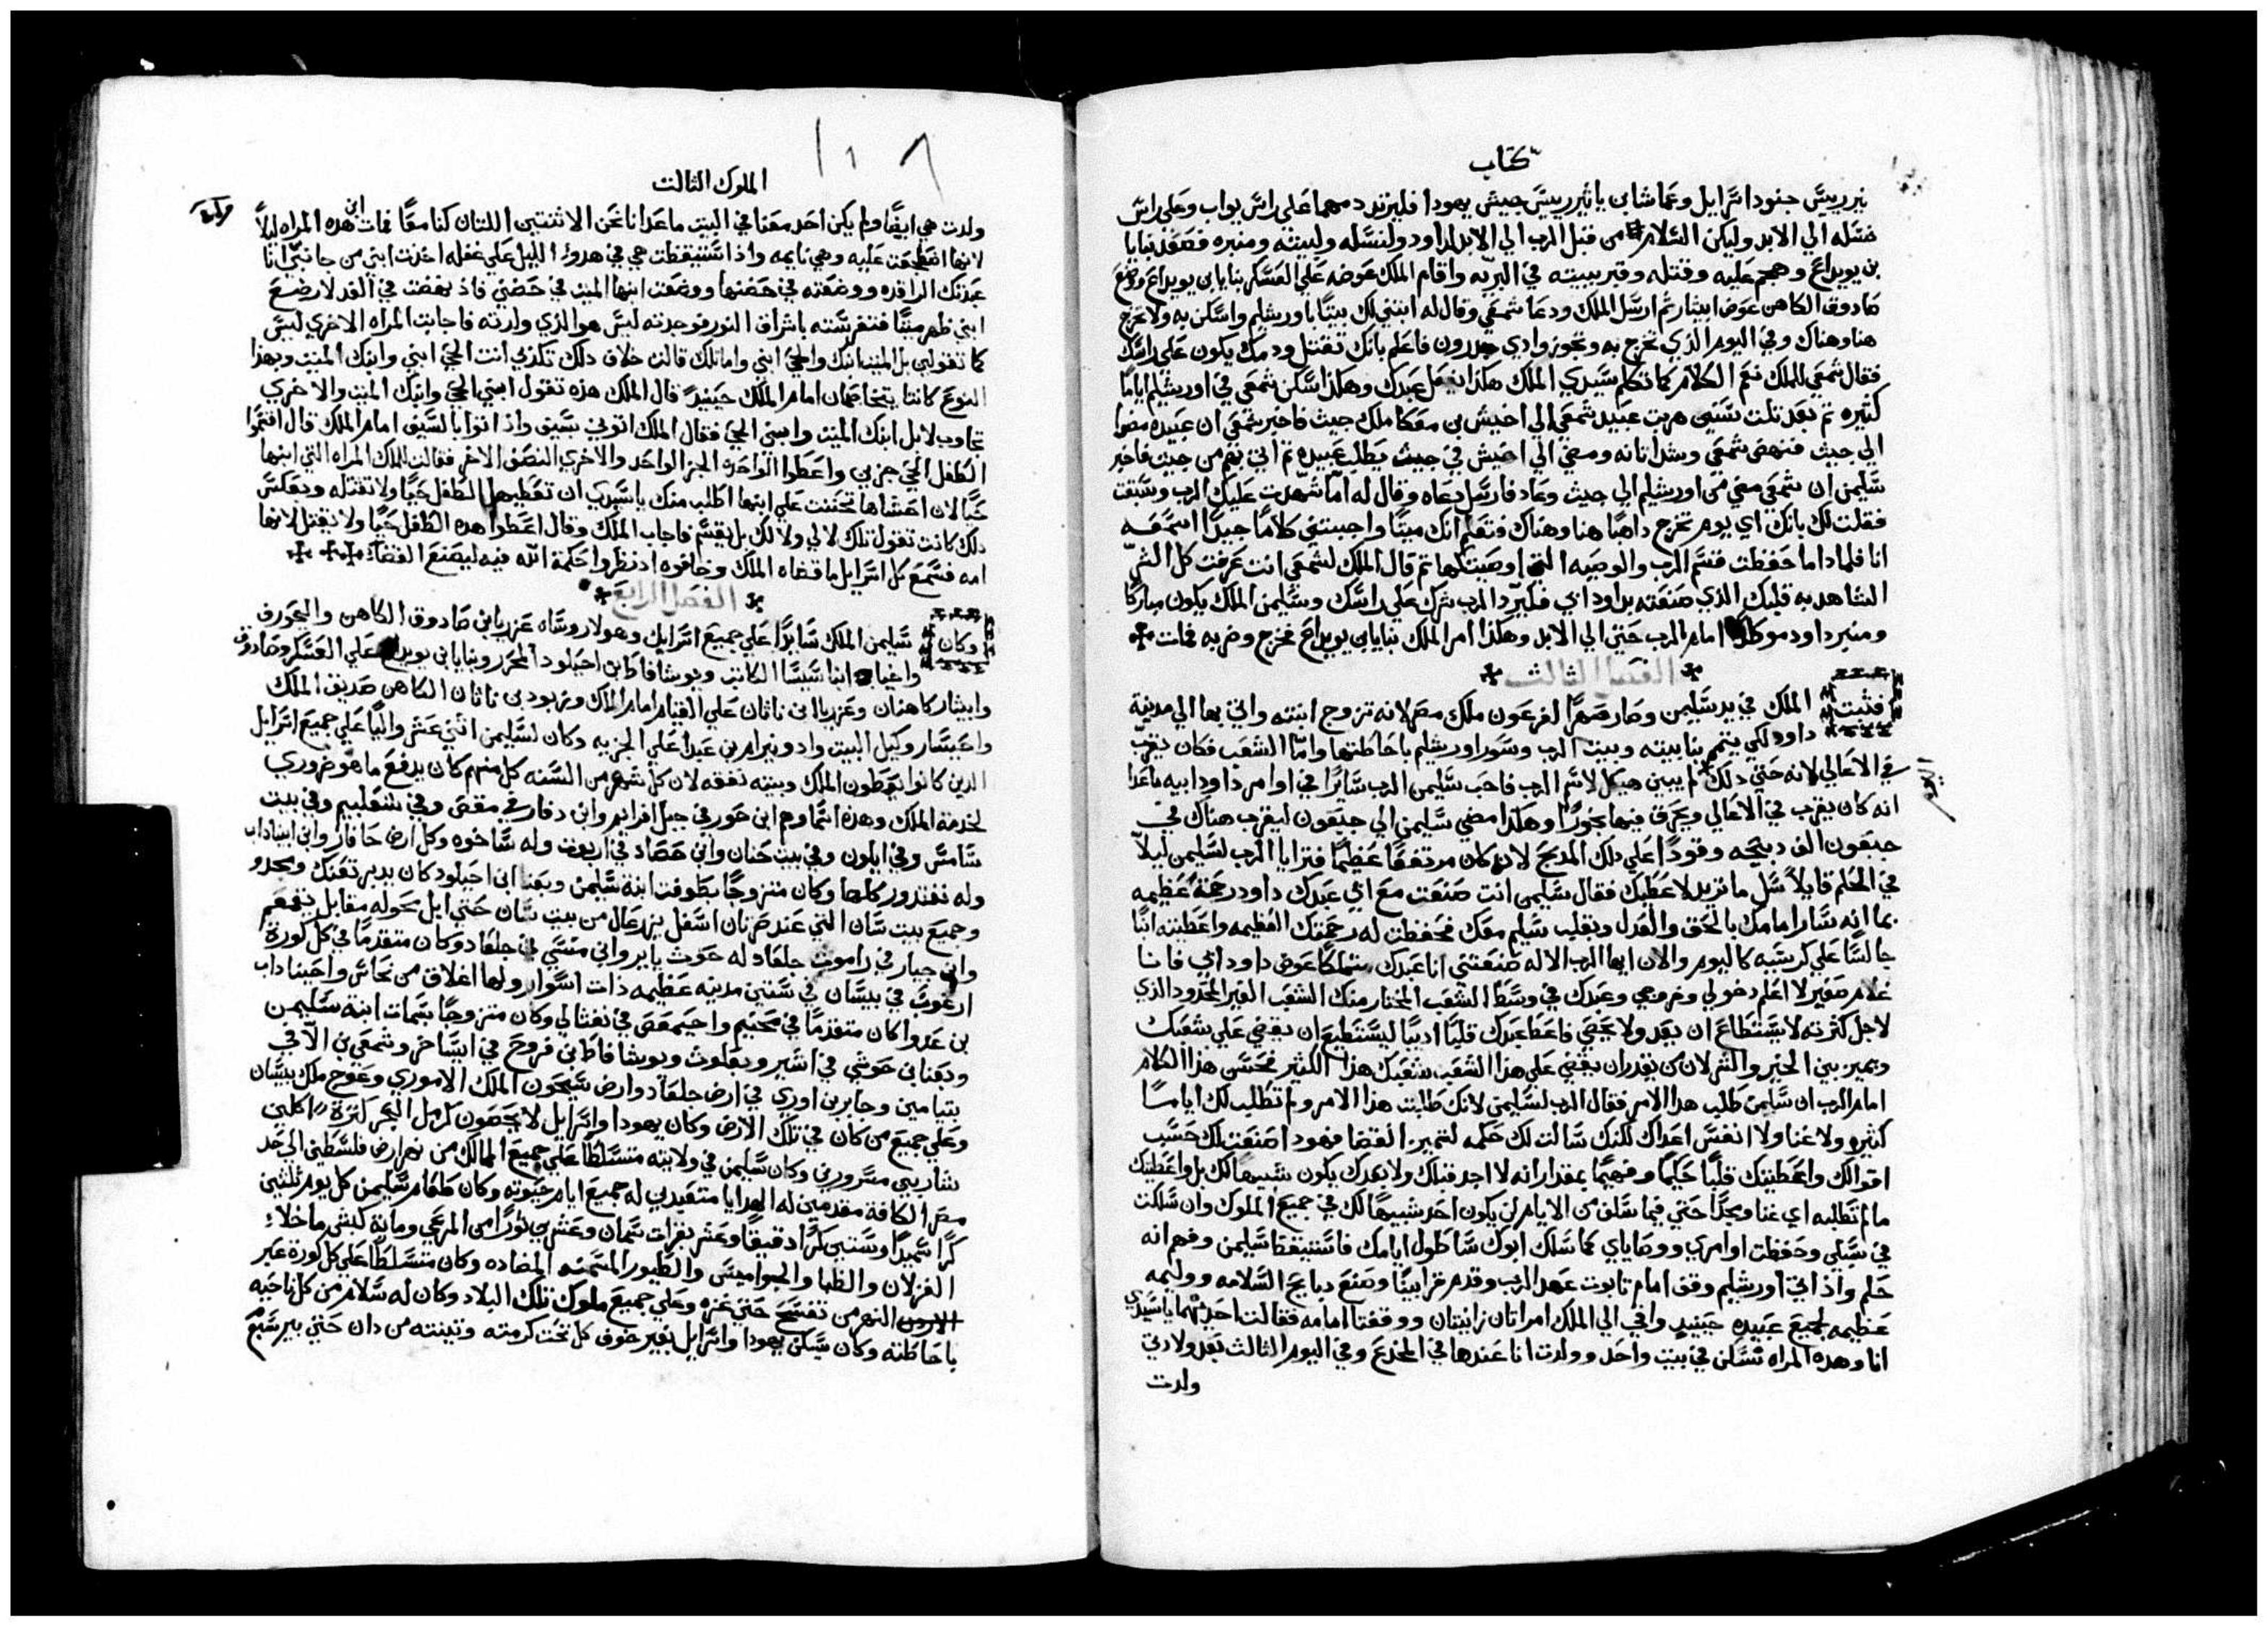 كتاب
نير رييس جنود اسرايل وعماشا بن ياثير رييس جيش يهودا فليرتدد دمهما علي راس يواب وعلي راس
نسله الي الابد وليكن السلام من قبل الرب الي الابد لداود ولنسله ولبيته ومنبره فصعد بنايا
بن يويداع وهجم عليه وقتله وقبر ببيته في البريه واقام الملك عوضه علي العسكر بنايا بن يويداع ووضع
صادوق الكاهن عوض ابيثار ثم ارسل الملك ودعا شمعي وقال له ابتني لك بيتًا باورشليم واسكن به ولا تخرج
هنا وهناك وفي اليوم الذي تخرج به وتجوز وادي حدرون فاعلم بانك تقتل ودمك يكون علي راسك
فقال شمعي للملك نعم الكلام كما تكلم سيدي الملك هكذا يفعل عبدك وهكذا سكن شمعي في اورشليم ايامًا
كثيره ثم بعد تلت سنين هربت عبيد شمعي الي اخيش بن معكا ملك جيث فاخبر شمعي ان عبيده مضوا
الي جيث فنهض شمعي وشد اتانه ومضي الي اخيش في جيث يطلب عبيده ثم اتي بهم من جيث فاخبر
سليمن ان شمعي مضي من اورشليم الي جيث وعاد فارسل دعاه وقال له اما شهدت عليك الرب وسبقت
فقلت لك بانك اي يوم تخرج داهبًا هنا وهناك فتعلم انك ميتًا واجبتني كلامًا جيدًا استمعه
انا فلماذا ما حفظت قسم الرب والوصيه التي اوصيتك بها ثم قال الملك لشمعي انت عرفت كل الشر
الشاهد به قلبك الذي صنعته بداود ابي فليرد الرب شرك علي راسك وسليمن الملك يكون مباركًا
ومنبر داود موطدًا امام الرب حتي الي الابد وهكذا امر الملك بنايا بن يويداع فخرج وضربه فمات
الفصل الثالث
فثبت الملك في يد سليمن وصار صهرًا لفرعون ملك مصر لانه تزوج ابنته واتي بها الي مدينة
داود لكي يتمم بنا بيته وبيت الرب وسور اورشليم باحاطتها واما الشعب فكان يقرب
في الاعالي لانه حتي دلك لم يبني هيكل لاسم الرب فاحب سليمن الرب سايرًا في اوامر داود ابيه ماعدا
انه كان يقرب في الاعالي ويحرق فيها بخورًا وهكذا مضي سليمن الي جبعون ليقرب هناك في
جبعون الف دبيحه وقودًا علي دلك المدبح لانه كان مرتفعًا عظيمًا فترايا الرب لسليمن ليلاً
في الحلم قايلاً سل ما تريد لاعطيك فقال سليمن انت صنعت مع ابي عبدك داود رحمة عظيمه
بما انه سار امامك بالحق والعدل وبقلب سليم معك فحفظت له رحمتك العظيمه واعطيته ابنًا
جالسًا علي كرسيه كاليوم والان ايها الرب الاله صنعتني انا عبدك متملكًا عوض داود ابي فانا
غلام صغير لا اعلم دخولي وخروجي وعبدك في وسط الشعب المختار منك الشعب الغير المحدود الذي
لاجل كثرته لا يستطاع ان يعد ولا يحصي فاعط عبدك قلبًا اديبًا ليستطيع ان يقضي علي شعبك
ويميز بين الخير والشر لان من يقدر ان يقضي علي هذا الشعب شعبك هذا الكثير فحسن هذا الكلام
امام الرب ان سليمن طلب هذا الامر فقال الرب لسليمن لانك طلبت هذا الامر ولم تطلب لك ايامًا
كثيره ولا غنا ولا انفس اعداك لكنك سالت لك حكمه لتميز القضا فهودا صنعت لك حسب
اقوالك واعطيتك قلبًا حكيمًا وفهيمًا بمقدار انه لا احد قبلك ولا بعدك يكون شبيهًا لك بل واعطيتك
ما لم تطلبه اي غنا ومجدًا حتي فيما سلف من الايام لن يكون احد شبيهًا لك في جميع الملوك وان سلكت
في سبلي وحفظت اوامري ووصاياي كما سلك ابوك سا طول ايامك فاستيقظ سليمن وفهم انه
حلم واذ اتي اورشليم وقف امام تابوت عهد الرب وقدم قرابينًا وصنع دبايح السلامه ووليمه
عظيمه لجميع عبيده حينيد وافي الي الملك امراتان زانيتان ووقفتا امامه فقالت احديهما يا سيدي
انا وهده المراه نسكن في بيت واحد وولدت انا عندها في المخدع وفي اليوم الثالث بعد ولادتي
ولدت
الملوك الثالت
ولدت هي ايضًا ولم يكن احد معنا في البيت ماعدانا نحن الاثنتين اللتان كنا معًا فمات ابن هده المراه ليلاً
لانها انضجعت عليه وهي نايمه واذ استيقظت هي في هدو الليل علي غفله اخذت ابني من جانبي انا
عبدتك الراقده ووضعته في حضنها ووضعت ابنها الميت في حضني فاذ نهضت في الغد لارضع
ابني ظهر ميتًا فتفرسته باشراق النور فوجدته ليس هو الذي ولدته فاجابت المراه الاخري ليس
كما تقولي بل الميت ابنك والحي ابني واما تلك قالت خلاف دلك تكذبي انت الحي ابني وابنك الميت وبهذا
النوع كانتا يتخاصمان امام الملك حينيدٍ قال الملك هذه تقول ابني الحي وابنك الميت والاخري
تجاوب لا بل ابنك الميت وابني الحي فقال الملك اتوني بسيف واذ اتوا بالسيف امام الملك قال اقسموا
الطفل الحي جزين واعطوا الواحده الجز الواحد والاخري النصف الاخر فقالت للملك المراه التي ابنها
حيًا لان احشاها تحننت علي ابنها اطلب منك يا سيدي ان تعطيها الطفل حيًا ولا تقتله وبعكس
دلك كانت تقول تلك لا لي ولا لكِ بل يقسم فاجاب الملك وقال اعطوا هده الطفل حيًا ولا يقتل لانها
امه فسمع كل اسرايل ما قضاه الملك وخافوه اذ نظروا حكمة الله فيه ليصنع القضاء
الفصل الرابع
وكان سليمن الملك سايدًا علي جميع اسرايل وهولا روساه عزريا بن صادوق الكاهن واليحورف
واخيا ابنا سيسا الكاتب ويوشافاط بن احيلود المحرر وبنايا بن يويداع علي العسكر وصادوق
وابيثار كاهنان وعزريا ابن ناثان علي القيام امام الملك وزبود بن ناثان الكاهن صديق الملك
واحيسار وكيل البيت وادونيرام بن عبدا علي الجزيه وكان لسليمن اثني عشر واليًا علي جميع اسرايل
الدين كانوا يعطون الملك وبيته نفقه لان كل شهر من السنه كل منهم كان يدفع ما هو ضروري
لخدمة الملك وهذه اسماوهم ابن حور في جبل افرايم وابن دقار في مقص وفي شعلبيم وفي بيت
شامس وفي ايلون وفي بيت حنان وابن حصاد في اربوت وله ساخوه وكل ارض حافار وابن ابيناداب
وله نفتدور كلها وكان متزوجًا بطوفت ابنة سليمن وبعنا ابن احيلود كان يدبر تفنك ومجدو
وجميع بيت سان التي عند صرتان اسفل يزرعال من بيت سان حتي ابل محوله مقابل يقمعم
وابن جبار في راموت جلعاد له حوث ياير وابن منسي في جلعاد وكان متقدمًا في كل كورة
ارغوب في بيسان في ستين مدينه عظيمه ذات اسوار ولها اغلاق من نحاس واحيناداب
بن عدوا كان متقدمًا في محنيم واحيمعص في نفثالي وكان متزوجًا بسمات ابنة سليمن
وبعنا بن حوشي في اشير وبعلوث ويوشافاط بن فروح في ايساخر وشمعي بن الا في
بنيامين وجابر بن اوري في ارض جلعاد وارض سيحون الملك الاموري وعوج ملك بيسان
وعلي جميع من كان في تلك الارض وكان يهودا واسرايل لا يحصون كرمل البحر لكثرة اكلين
شاربين مسرورين وكان سليمن في ولايته متسلطًا علي جميع الممالك من نهر ارض فلسطين الي حد
مصر الكافة مقدمين له الهدايا متعبدين له جميع ايام حيوته وكان طعام سليمن كل يوم ثلثين
كرًا سميدًا وستين كرًا دقيقًا وعشر بقرات سمان وعشرين ثورًا من المرعي وماية كبش ما خلاء
الغزلان والظبا والجواميس والطيور المسمنه المضاده وكان متسلطًا علي كل كورة عبر
النهر من تفسح حتي غزه وعلي جميع ملوك تلك البلاد وكان له سلام من كل ناحيه
باحاطته وكان يسكن يهودا واسرايل بغير خوف كل تحت كرمته وتينته من دان حتي بيرسبع